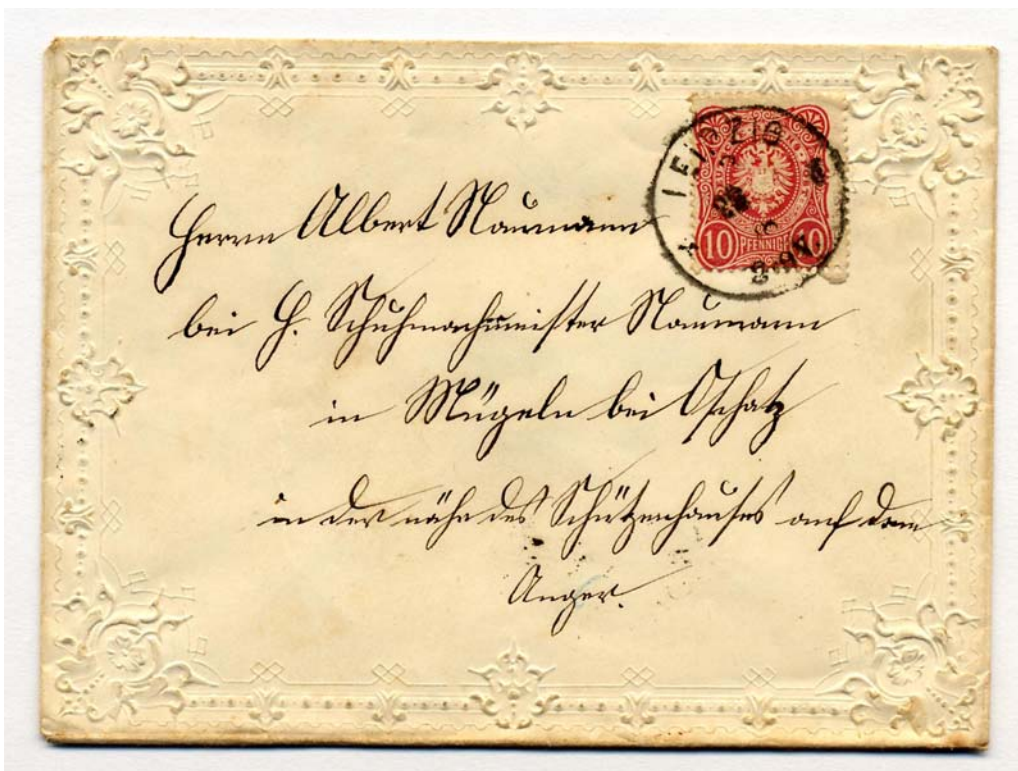 LEIPZIG
10 PFENNIG 10
Herrn Albert Naumann
bei H. Schuhmachermeister Naumann
in Mügeln bei Oschatz
in der nähe des Schützenhauses auf dem
Anger.